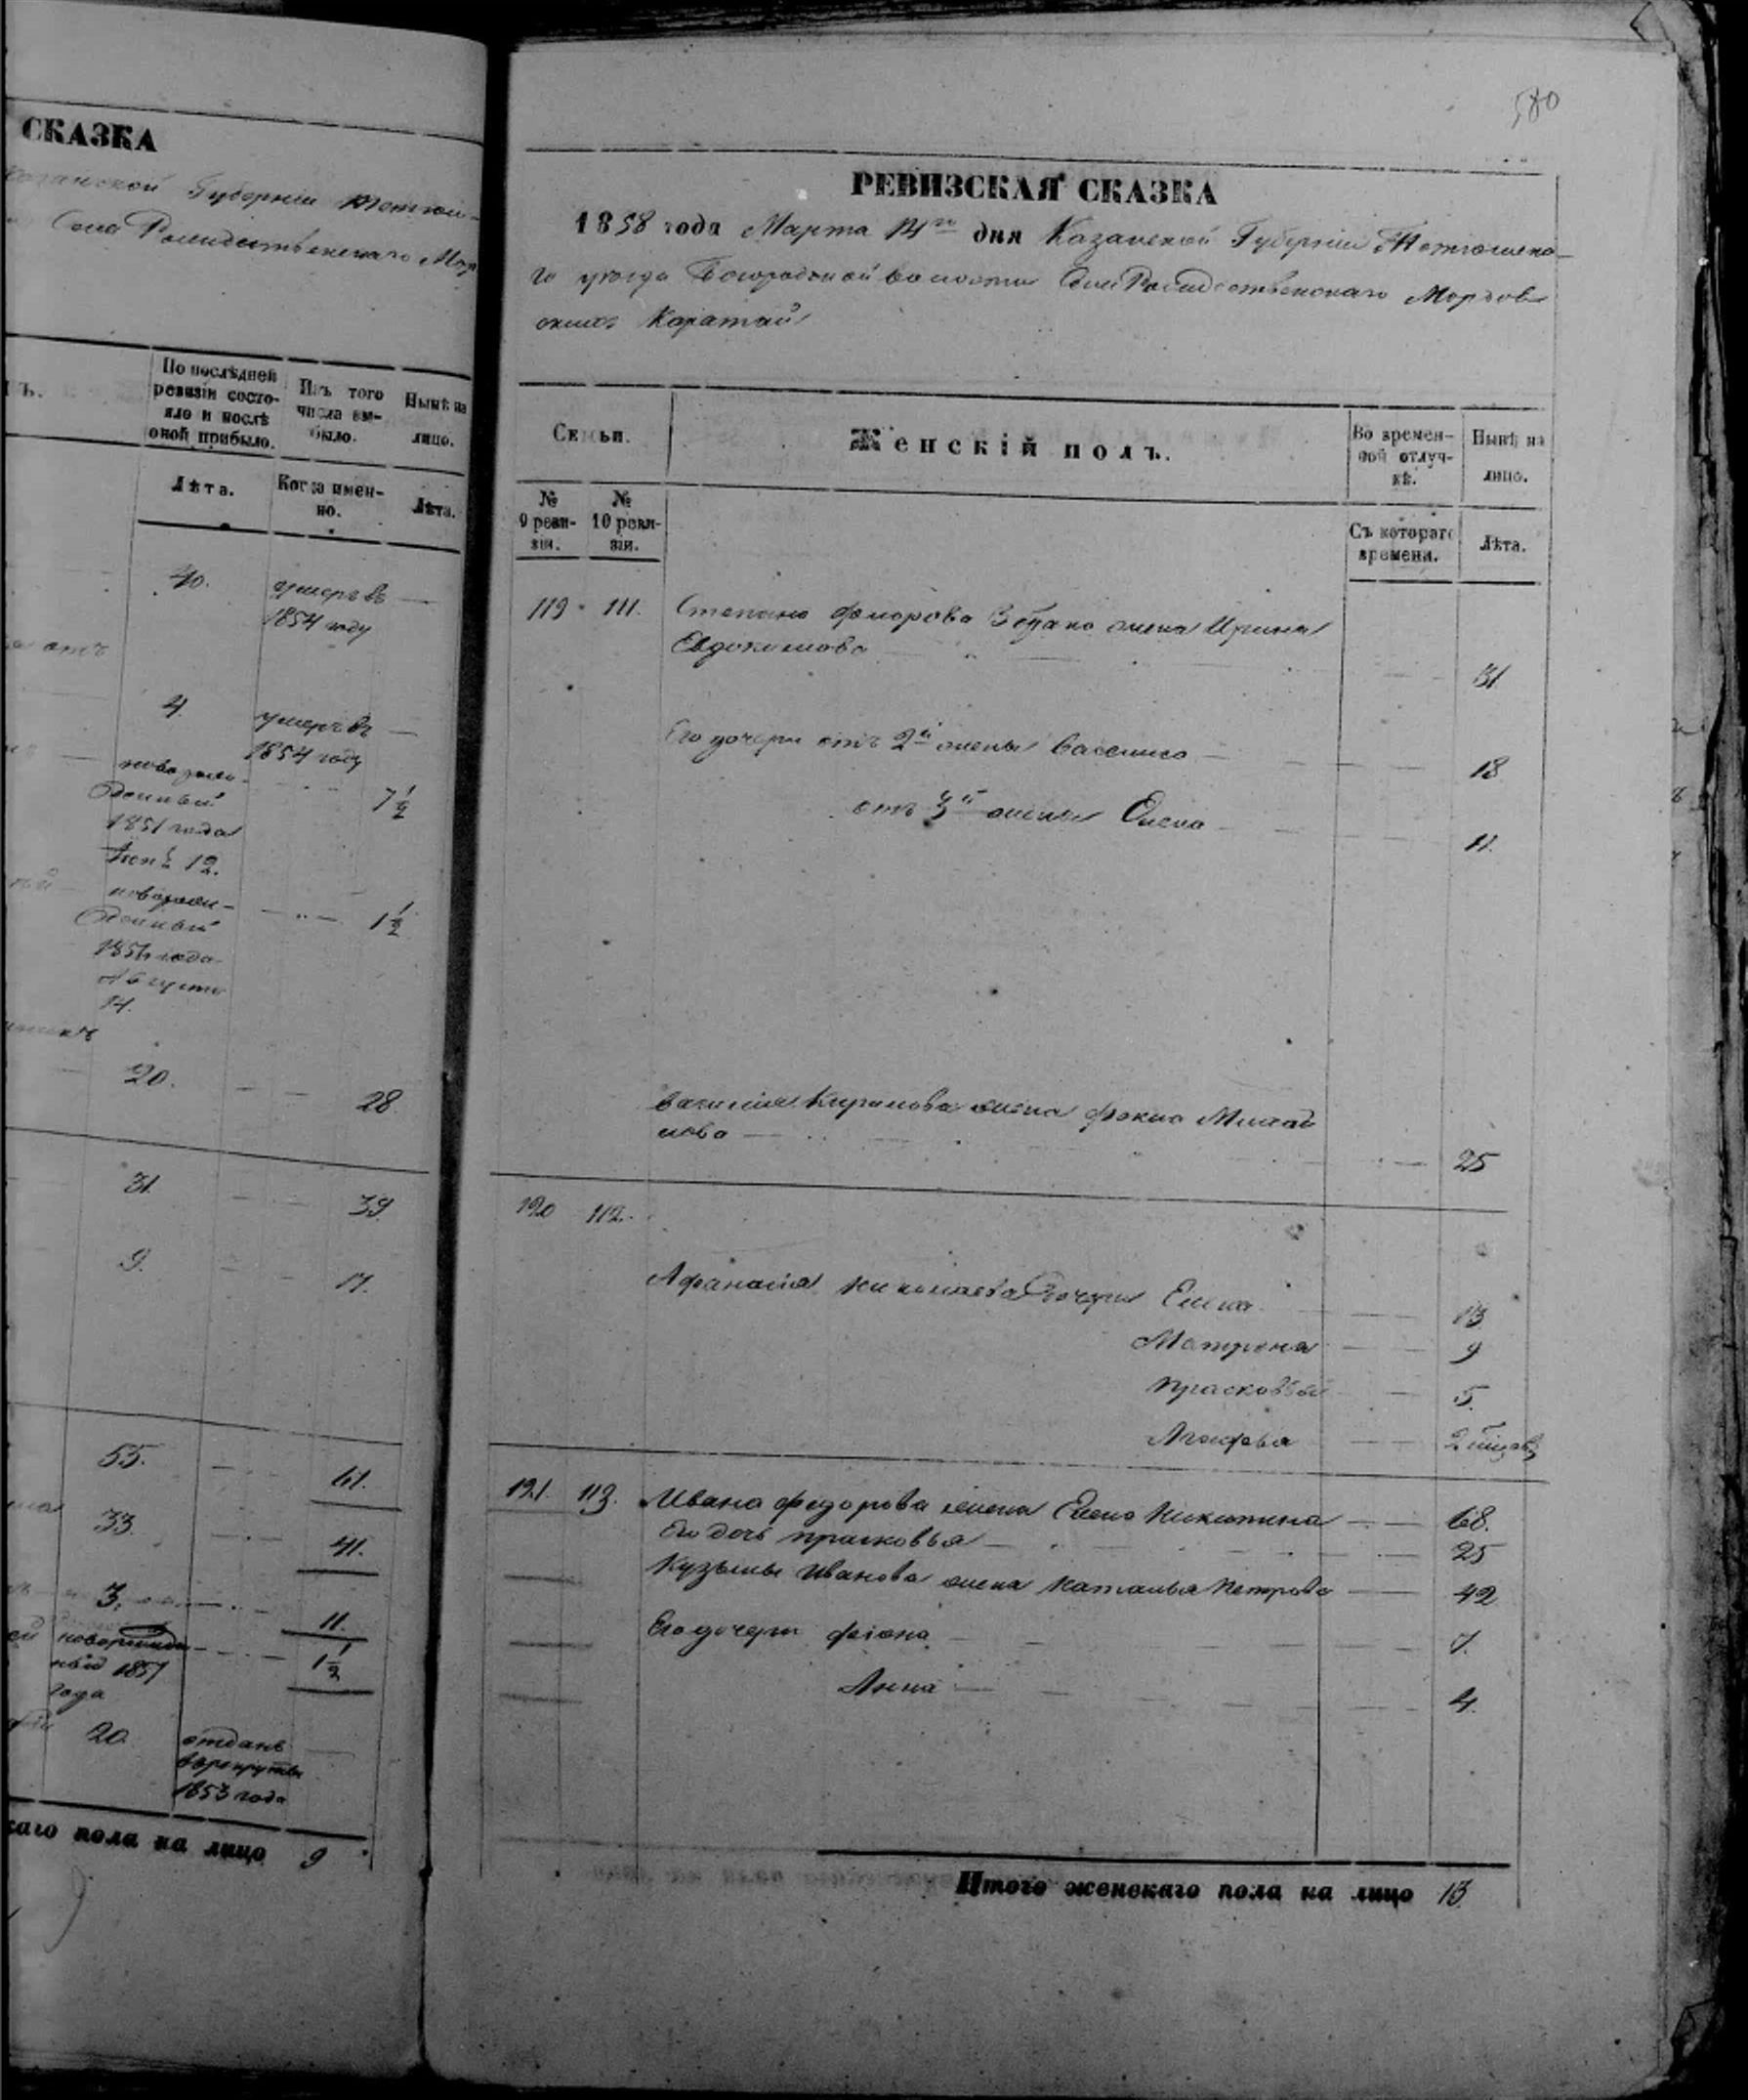 СКАЗКА
Казанской Губерніи Тетюш-
Села Рождественскаго Мор
По послѣдней ревизіи состояло и послѣ оной прибыло.
Изъ того числа выбыло.
Нынѣ на лицо.
Лѣта.
Когда именно.
Лѣта.
40. умеръ въ
1854 году
отъ
4. умеръ въ
1854 году
новорож-
денный 7½
1851 года
12.
новорож-
денный 1½
года
Августа
14.
20. 28
31. 39.
9. 17.
55. 61.
33. 41.
3. 11.
новорожден-
ный 1857 1½
года
20. отданъ
в рекруты
1853 года
каго пола на лицо 9
580
РЕВИЗСКАЯ СКАЗКА
1858 года Марта 14го дня Казанской Губерніи Тетюшска-
го уѣзда Богородской волости Села Рождественскаго Мордов
скихъ Каратай
Семьи.
Женскій полъ.
Во временной отлучкѣ.
Нынѣ на лицо.
№ 9 ревизіи.
№ 10 ревизіи.
Съ котораго времени.
Лѣта.
119. 111. Степана жена Ирина
Евдокимова 31.
Его дочери отъ 2й жены Васелиса 18
отъ 3й жены Елена 11.
Василія Кирилова жена Фекла Михай
лова 25
120 112.
Афанасія Николаева дочери Елена 13
Матрена 9
Прасковья 5.
Агафья
121. 113. Ивана Федорова жена Елена Никитина 68.
Его дочь Прасковья 25
Кузьмы Иванова жена Наталья Петрова 42
Его дочери Феіона 7.
Анна 4.
Итого женскаго пола на лицо 13.